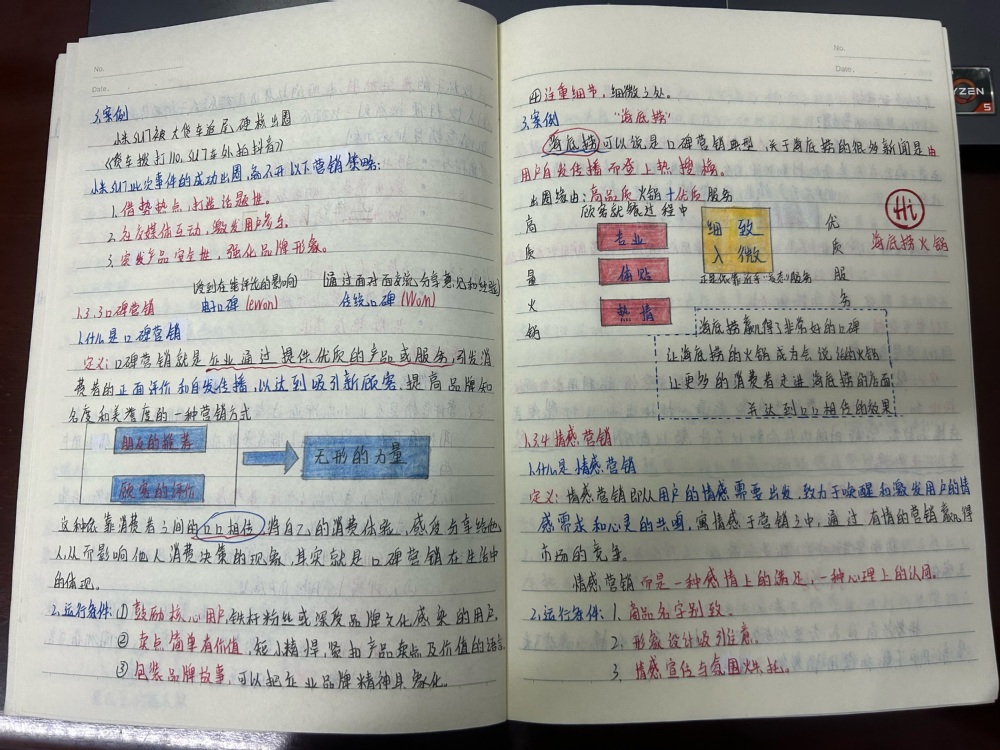 No.
Date.
3.案例
小米SU7被大货车追尾硬核出圈
《货车拨打110,SU7车外拍抖音》
小米SU7此次事件的成功出圈,离不开以下营销策略:
1.借势热点,打造话题性。
2.多方媒体互动,激发用户参与。
3.突发产品安全性,强化品牌形象。
(受到在线评论的影响) (通过面对面交流,分享意见和经验)
1.3.3口碑营销 电子口碑(eWom) 传统口碑(WoM)
1.什么是口碑营销
定义:口碑营销就是企业通过提供优质的产品或服务,引发消
费者的正面评价和自发传播,以达到吸引新顾客、提高品牌知
名度和美誉度的一种营销方式
朋友的推荐
顾客的评价
无形的力量
这种依靠消费者之间的口口相传,将自己的消费体验、感度分享给他
人,从而影响他人消费决策的现象,其实就是口碑营销在生活中
的体现。
2.运行条件:①鼓励核心用户,铁杆粉丝或深度品牌文化感染的用户。
②卖点简单有价值,短小精悍,紧扣产品卖点及价值的语言
③包装品牌故事,可以把企业品牌精神具象化。
No.
Date.
④注重细节,细微之处。
3.案例 "海底捞"
海底捞可以说是口碑营销典型,关于海底捞的很多新闻是由
用户自发传播而登上热搜榜。
出圈缘由:高品质火锅+优质服务
顾客就餐过程中
高质量火锅
专业
体贴
热情
细致
入微
正是依靠近乎"变态"服务
优质服务
Hi
海底捞火锅
海底捞赢得了非常好的口碑
让海底捞的火锅成为会说话的火锅
让更多的消费者走进海底捞的店面
并达到口口相传的效果
1.3.4情感营销
1.什么是情感营销
定义:情感营销即从用户的情感需要出发,致力于唤醒和激发用户的情
感需求和心灵的共鸣,寓情感于营销之中,通过有情的营销赢得
市场的竞争。
情感营销而是一种感情上的满足,一种心理上的认同。
2.运行条件:1.商品名字别致。
2.形象设计吸引注意。
3.情感宣传与氛围烘托。
RYZEN
5